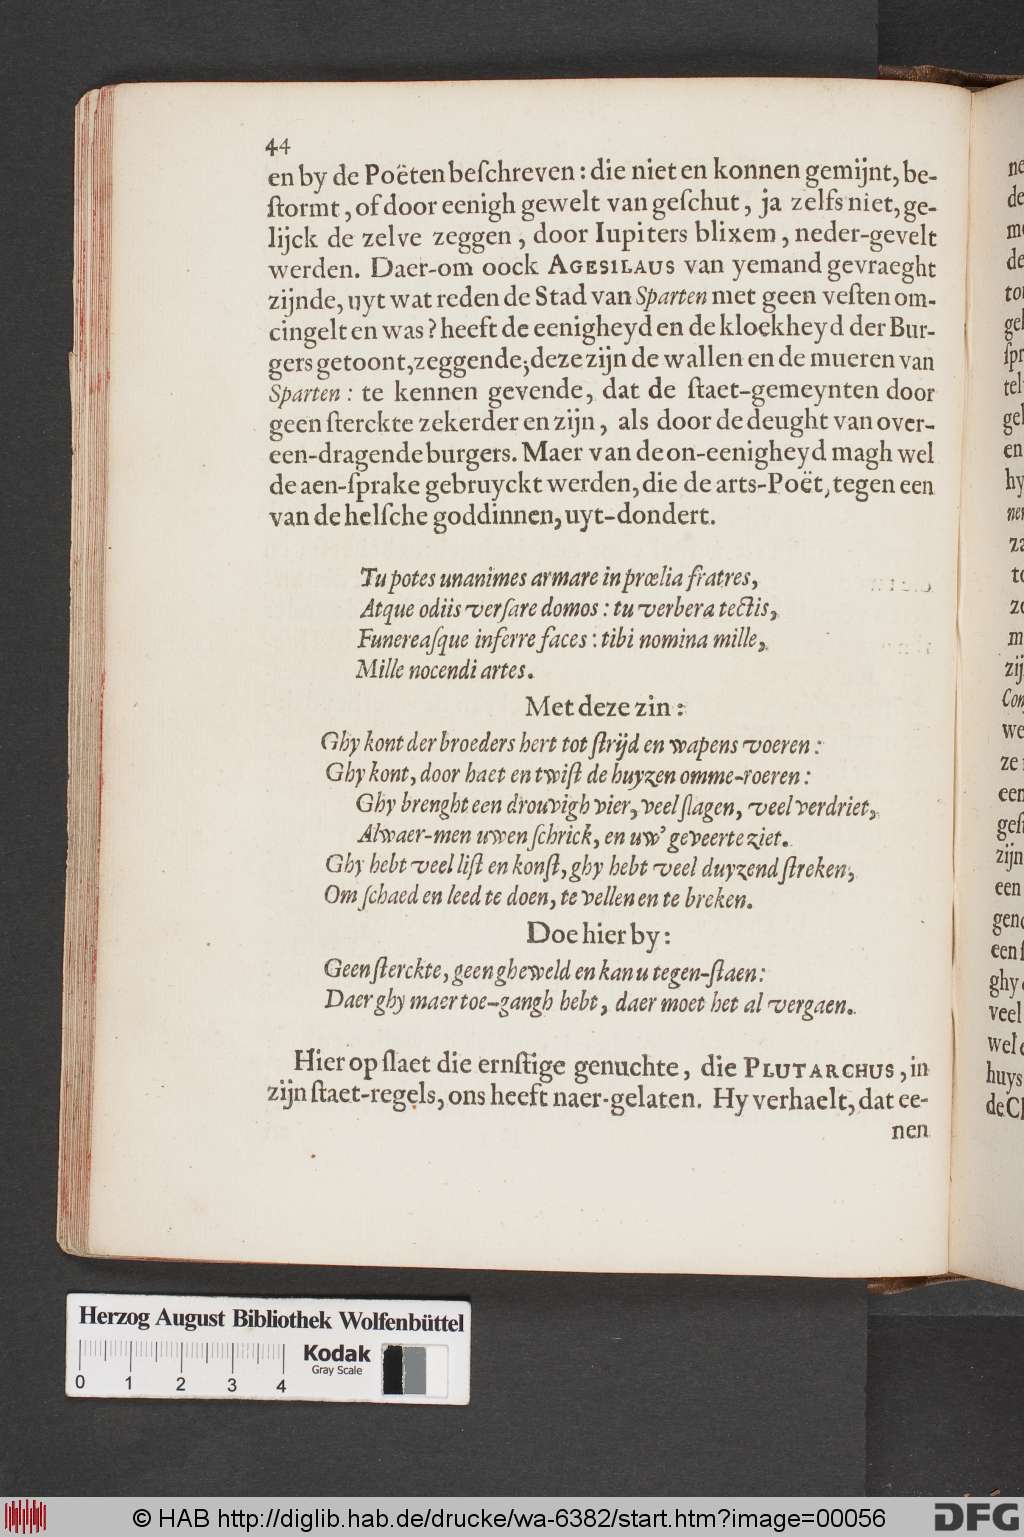 44
en by de Poëten beſchreven : die niet en konnen gemijnt, be-
ſtormt , of door eenigh gewelt van geſchut , ja zelfs niet, ge-
lijck de zelve zeggen , door Iupiters blixem , neder-gevelt
werden. Daer-om oock AGESILAUS van yemand gevraeght
zijnde, uyt wat reden de Stad van Sparten met geen veſten om-
cingelt en was ? heeft de eenigheyd en de kloekheyd der Bur-
gers getoont, zeggende; deze zijn de wallen en de mueren van
Sparten : te kennen gevende, dat de ſtaet-gemeynten door
geen ſterckte zekerder en zijn , als door de deught van over-
een-dragende burgers. Maer van de on-eenigheyd magh wel
de aen-ſprake gebruyckt werden, die de arts-Poët, tegen een
van de helſche goddinnen, uyt-dondert.
Tu potes unanimes armare in prœlia fratres,
Atque odiis verſare domos : tu verbera tectis,
Funereaſque inferre faces : tibi nomina mille,
Mille nocendi artes.
Met deze zin :
Ghy kont der broeders hert tot ſtrijd en wapens voeren :
Ghy kont, door haet en twiſt de huyzen omme-roeren :
Ghy brenght een drouvigh vier, veel ſlagen, veel verdriet,
Alwaer-men uwen ſchrick, en uw' geveerte ziet.
Ghy hebt veel liſt en konſt, ghy hebt veel duyzend ſtreken,
Om ſchaed en leed te doen, te vellen en te breken.
Doe hier by :
Geen ſterckte, geen gheweld en kan u tegen-ſtaen :
Daer ghy maer toe-gangh hebt, daer moet het al vergaen.
Hier op ſlaet die ernſtige genuchte, die PLUTARCHUS, in
zijn ſtaet-regels, ons heeft naer-gelaten. Hy verhaelt, dat ee-
nen
Herzog August Bibliothek Wolfenbüttel
Kodak
Gray Scale
0 1 2 3 4
© HAB http://diglib.hab.de/drucke/wa-6382/start.htm?image=00056
DFG